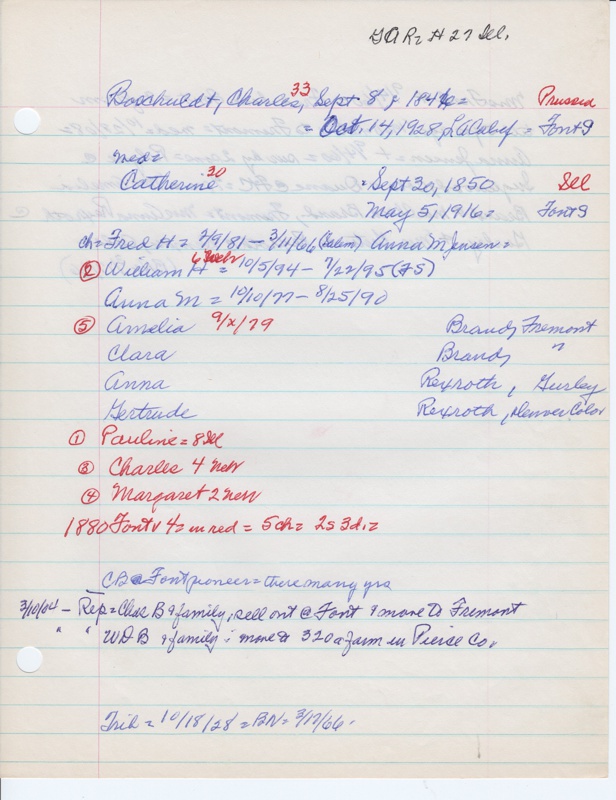 GAR = H 27 Ill.
Boschuldt, Charles, 33 Sept 8, 1846 = Prussia
= Oct. 14, 1928, LACabef = Font 9
med =
Catherine 30 = Sept 30, 1850 Ill
May 5, 1916 = Font 9
ch = Fred H = 7/9/81 – 3/11/66 (Salem) Anna M Jensen =
② William H = 6 Nebr 10/5/94 – 7/22/95 (FS)
Anna M = 10/10/77 – 8/25/90
⑤ Amelia 9/x/79 Brandy Fremont
Clara Brandy "
Anna Rexroth, Gurley
Gertrude Rexroth, Denver Color
① Pauline = 8 Ill
③ Charles 4 Nebr
④ Margaret 2 Nebr
1880 Font v 4 = in red = 5ch = 2s 3d =
CB @ Font pioneer = there many yrs
3/10/04 – Rep = Chas B & family, sell out @ Font & move to Fremont
" " W D B & family, move to 320 a farm in Pierce Co.
Trib = 10/18/28 = BN = 3/17/66.